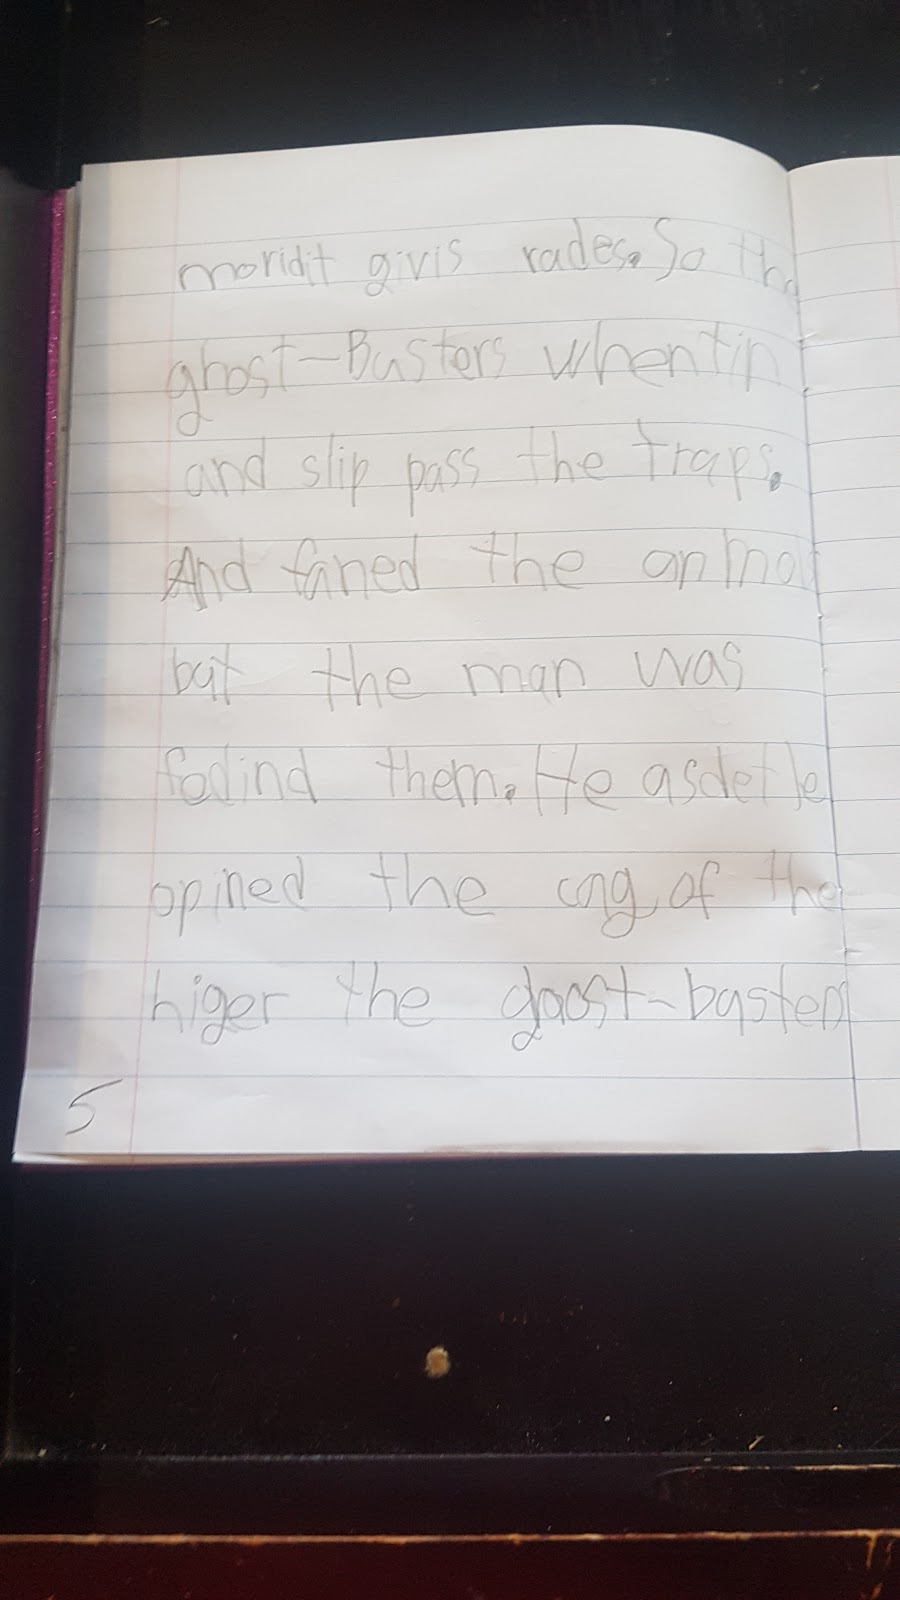 moridit givis rades. So the
ghost-Busters whentin
and slip pass the traps.
And faned the anlmal
but the man was
fodind them. He asdetle
opined the cng of the
higer the gaost-basters
5